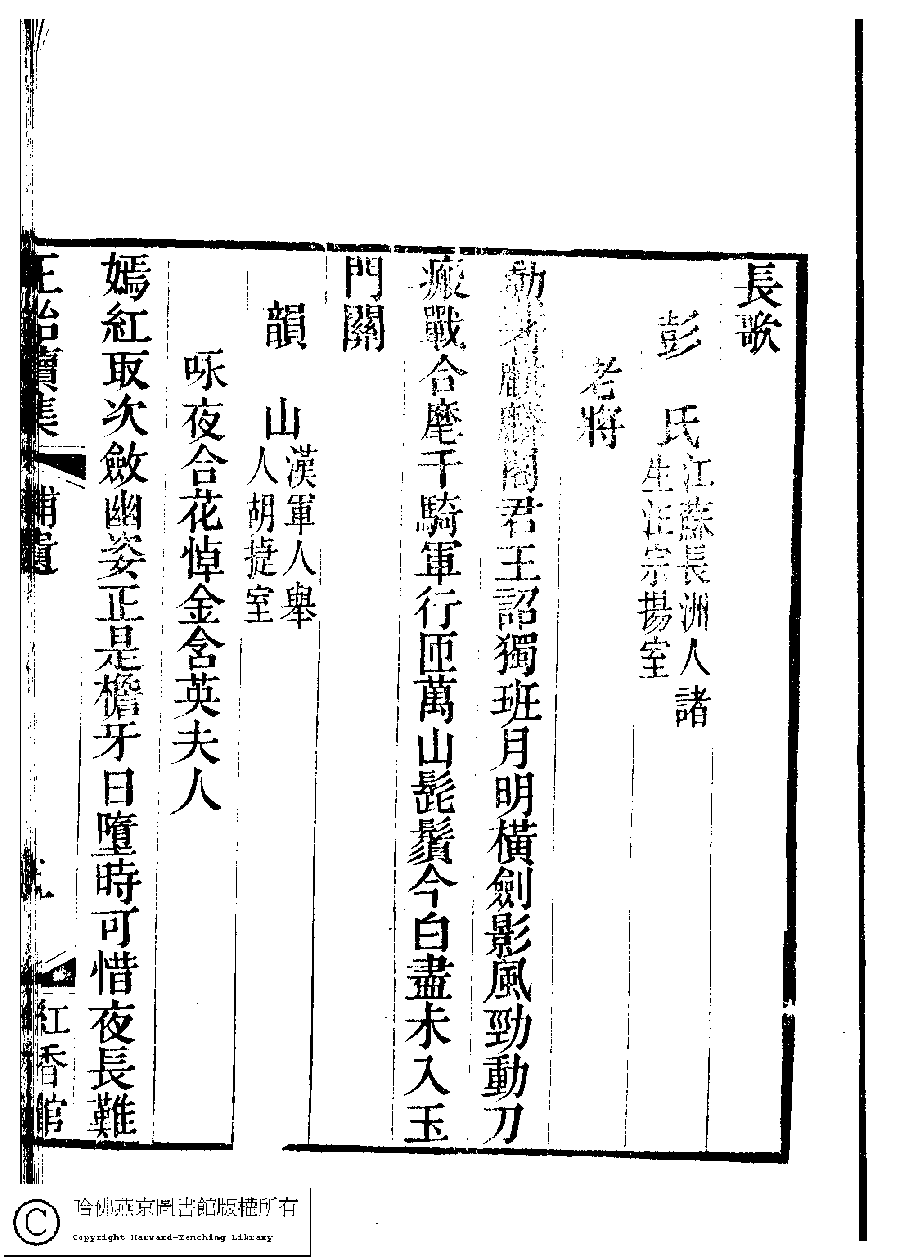 長歌
彭　氏 江蘇長洲人諸
生汪宗揚室
老將
勳著麒麟閣君王詔獨班月明橫劍影風勁動刀
瘢戰合麾千騎軍行匝萬山髭鬚今白盡未入玉
門關
韻　山 漢軍人舉
人胡捷室
咏夜合花悼金含英夫人
嫣紅取次斂幽姿正是檐牙日墮時可惜夜長難
正始續集
補遺
紅香館
哈佛燕京圖書館版權所有
Copyright Harvard-Yenching Library